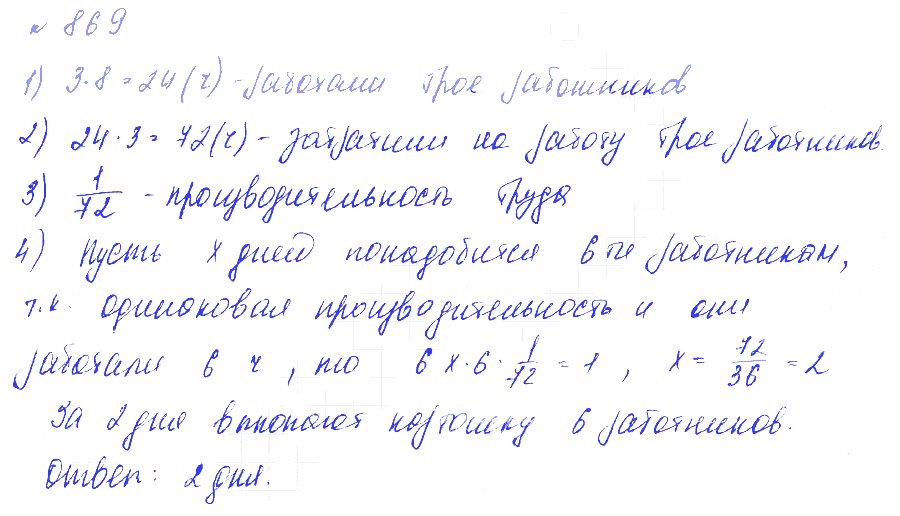 № 869
1) 3·8=24(ч) - работали трое работников
2) 24·3=72(ч) - затратили на работу трое работников.
3) 1/72 - производительность труда
4) Пусть x дней понадобится 6-ти работникам,
т.к. одинаковая производительность и они
работали 6 ч, то 6x·6·1/72=1, x=72/36=2
За 2 дня выкопают картошку 6 работников.
Ответ: 2 дня.